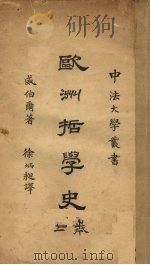 中法大學叢書
歐洲哲學史
威伯爾著　徐炳昶譯
mtoou.info